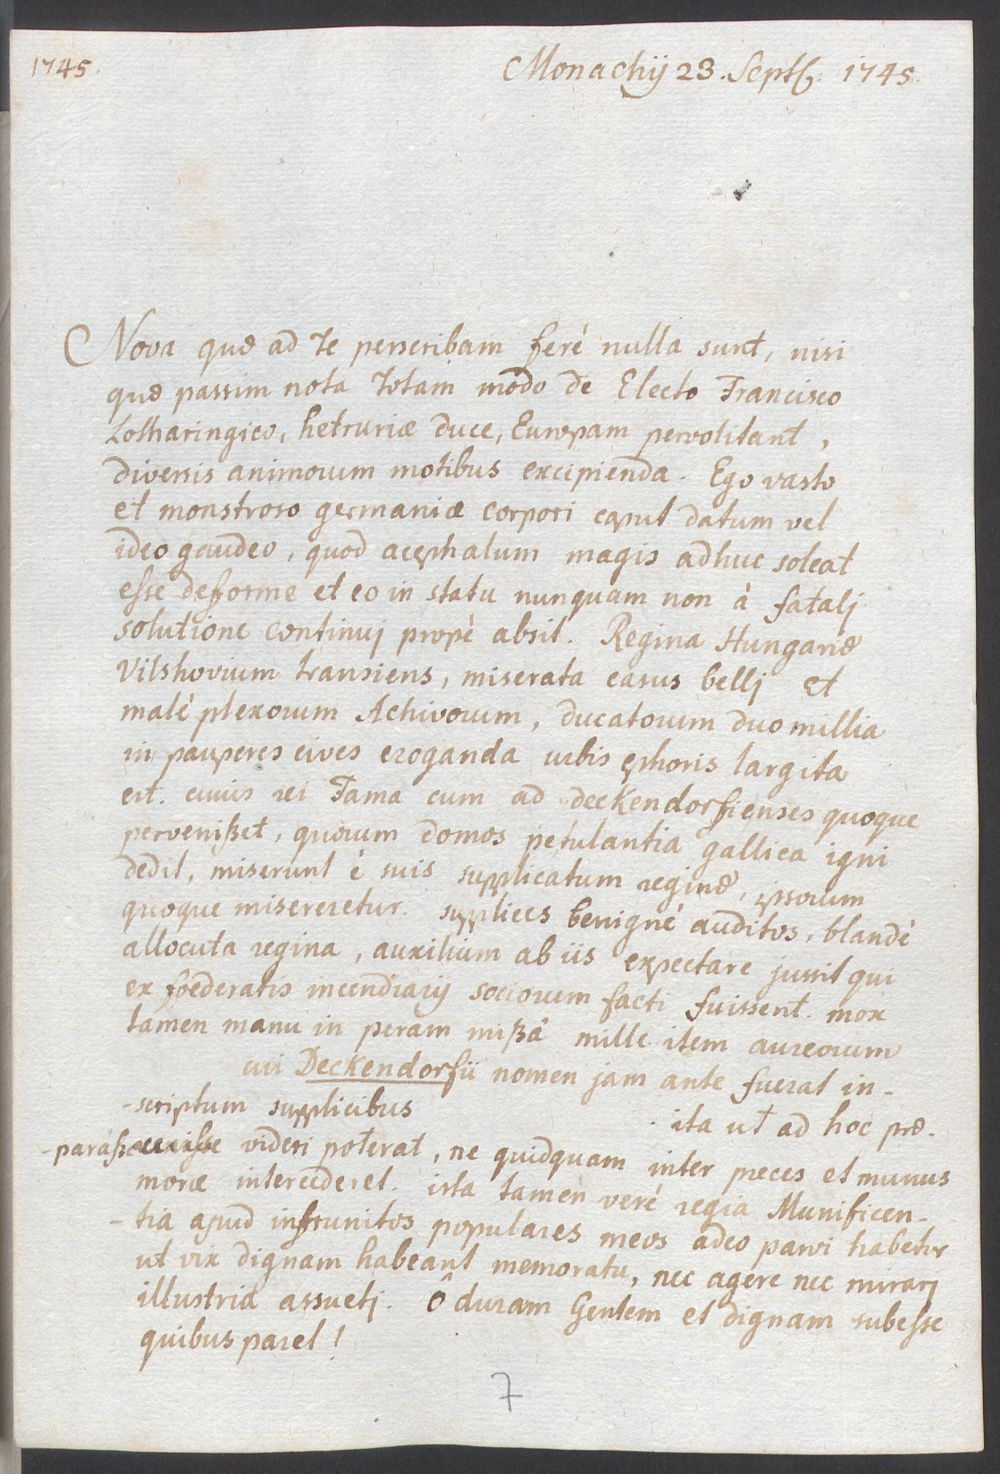 1745.
Monachij 23. Septb. 1745.
Nova quæ ad te perscribam ferè nulla sunt, nisi
quæ passim nota totam modo de Electo Francisco
Lotharingico, hetruriæ duce, Europam pervolitant,
diversis animorum motibus excipienda. Ego vasto
et monstroso germaniæ corpori caput datum vel
ideo gaudeo, quod acephalum magis adhuc soleat
esse deforme et eo in statu nunquam non à fatalj
solutione continuj propè absit. Regina Hungariæ
Vilshovium transiens, miserata casus bellj et
malè plexorum Achivorum, ducatorum duo millia
in pauperes cives eroganda urbis ephoris largita
est. cuius rei Fama cum ad deckendorfienses quoque
pervenißet, quorum domos petulantia gallica igni
dedit, miserunt è suis supplicatum reginæ, ipsorum
quoque misereretur. supplices benignè auditos, blandè
allocuta regina, auxilium ab iis expectare jussit qui
ex foederatis incendiarij sociorum facti fuissent. mox
tamen manu in peram mißâ mille item aureorum
cui Deckendorfii nomen jam ante fuerat in-
-scriptum supplicibus ita ut ad hoc præ-
-paraße videri poterat, ne quidquam inter preces et munus
moræ intercederet. ista tamen verè regia Munificen-
-tia apud infrunitos populares meos adeo parvi habetur
ut vix dignam habeant memoratu, nec agere nec mirarj
illustria assuetj. Ô duram Gentem et dignam subesse
quibus paret!
7